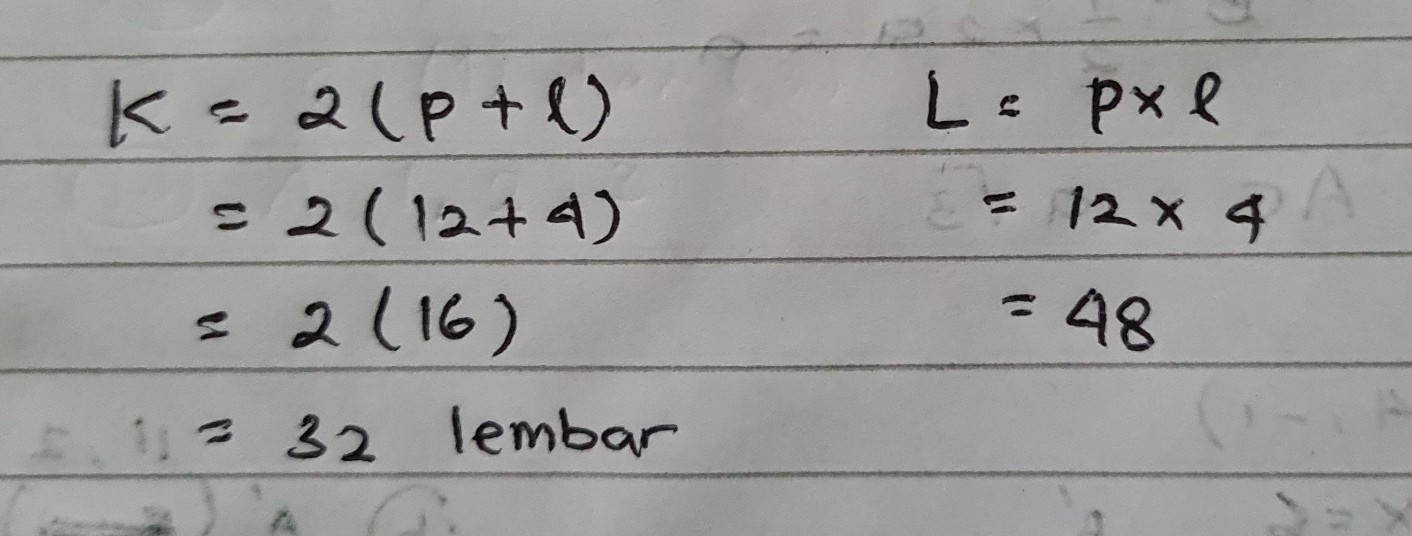 K = 2(p + l)
= 2(12+4)
= 2(16)
= 32 lembar
L = p x l
= 12 x 4
= 48